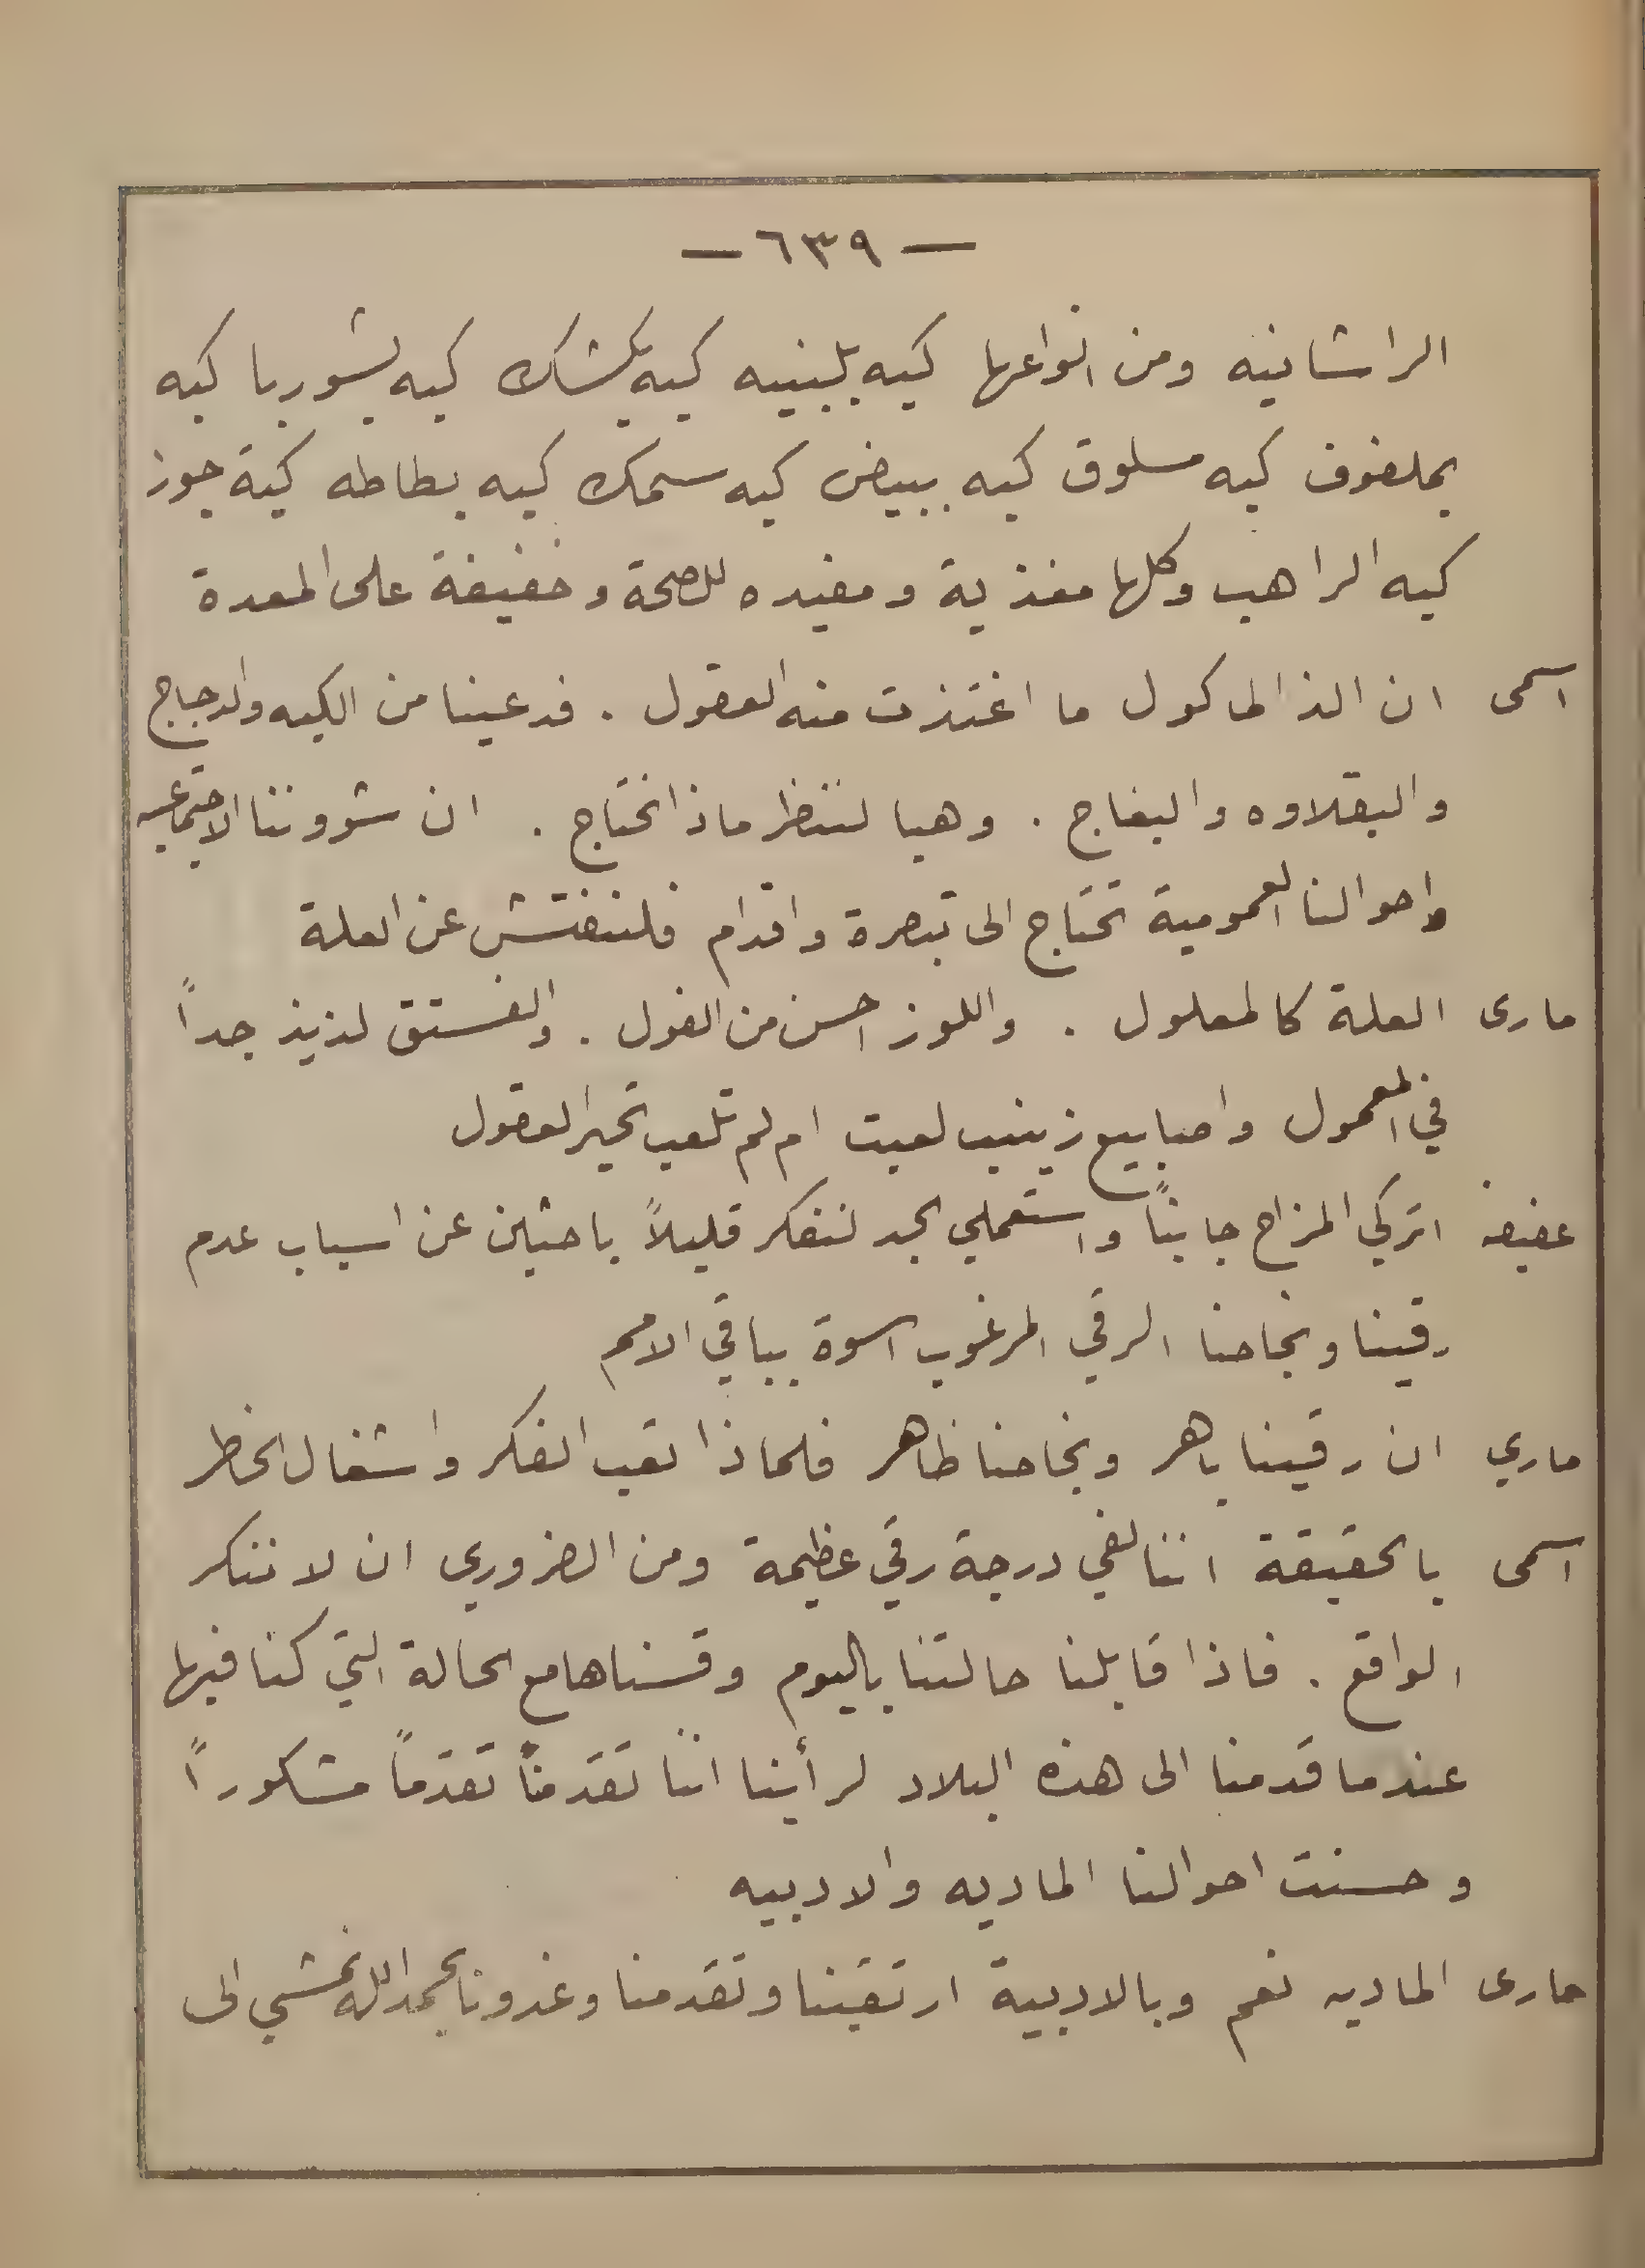 — ٦٣٩ —
الراشانيه ومن انواعها كبه بلبنيه كبه بكشك كبه بشوربا كبه
بملفوف كبه مسلوق كبه ببيض كبه سمك كبه بطاطه كبة جوز
كبه الراهب وكلها مغذية ومفيده للصحة وخفيفة على المعدة
اسمى ان الذ المأكول ما اغتذت منه العقول . فدعينا من الكبه والدجاج
والبقلاوه والبغاج . وهيا لننظر ماذا نحتاج . ان شوؤننا الاجتماعيه
واحوالنا العمومية تحتاج الى تبصرة واقدام فلنفتش عن العلة
مارى العلة كالمعلول . واللوز احسن من الفول . والفستق لذيذ جداً
في المعمول واصابيع زينب لعبت ام لم تلعب تحير العقول
عفيفه اتركي المزاح جانباً واستعملي الجد لنفكر قليلاً باحثين عن اسباب عدم
رقينا ونجاحنا الرقي المرغوب اسوة بباقي الامم
ماري ان رقينا باهر ونجاحنا ظاهر فلماذا تعب الفكر واشغال الخاطر
اسمى بالحقيقة اننا لفي درجة رقي عظيمة ومن الضروري ان لا ننكر
الواقع . فاذا قابلنا حالتنا باليوم وقسناها مع الحالة التي كنا فيها
عندما قدمنا الى هذه البلاد لرأينا اننا تقدمنا تقدماً مشكوراً
وحسنت احوالنا الماديه والادبيه
مارى الماديه نعم وبالادبية ارتقينا وتقدمنا وغدونا بحمد الله نمشي الى